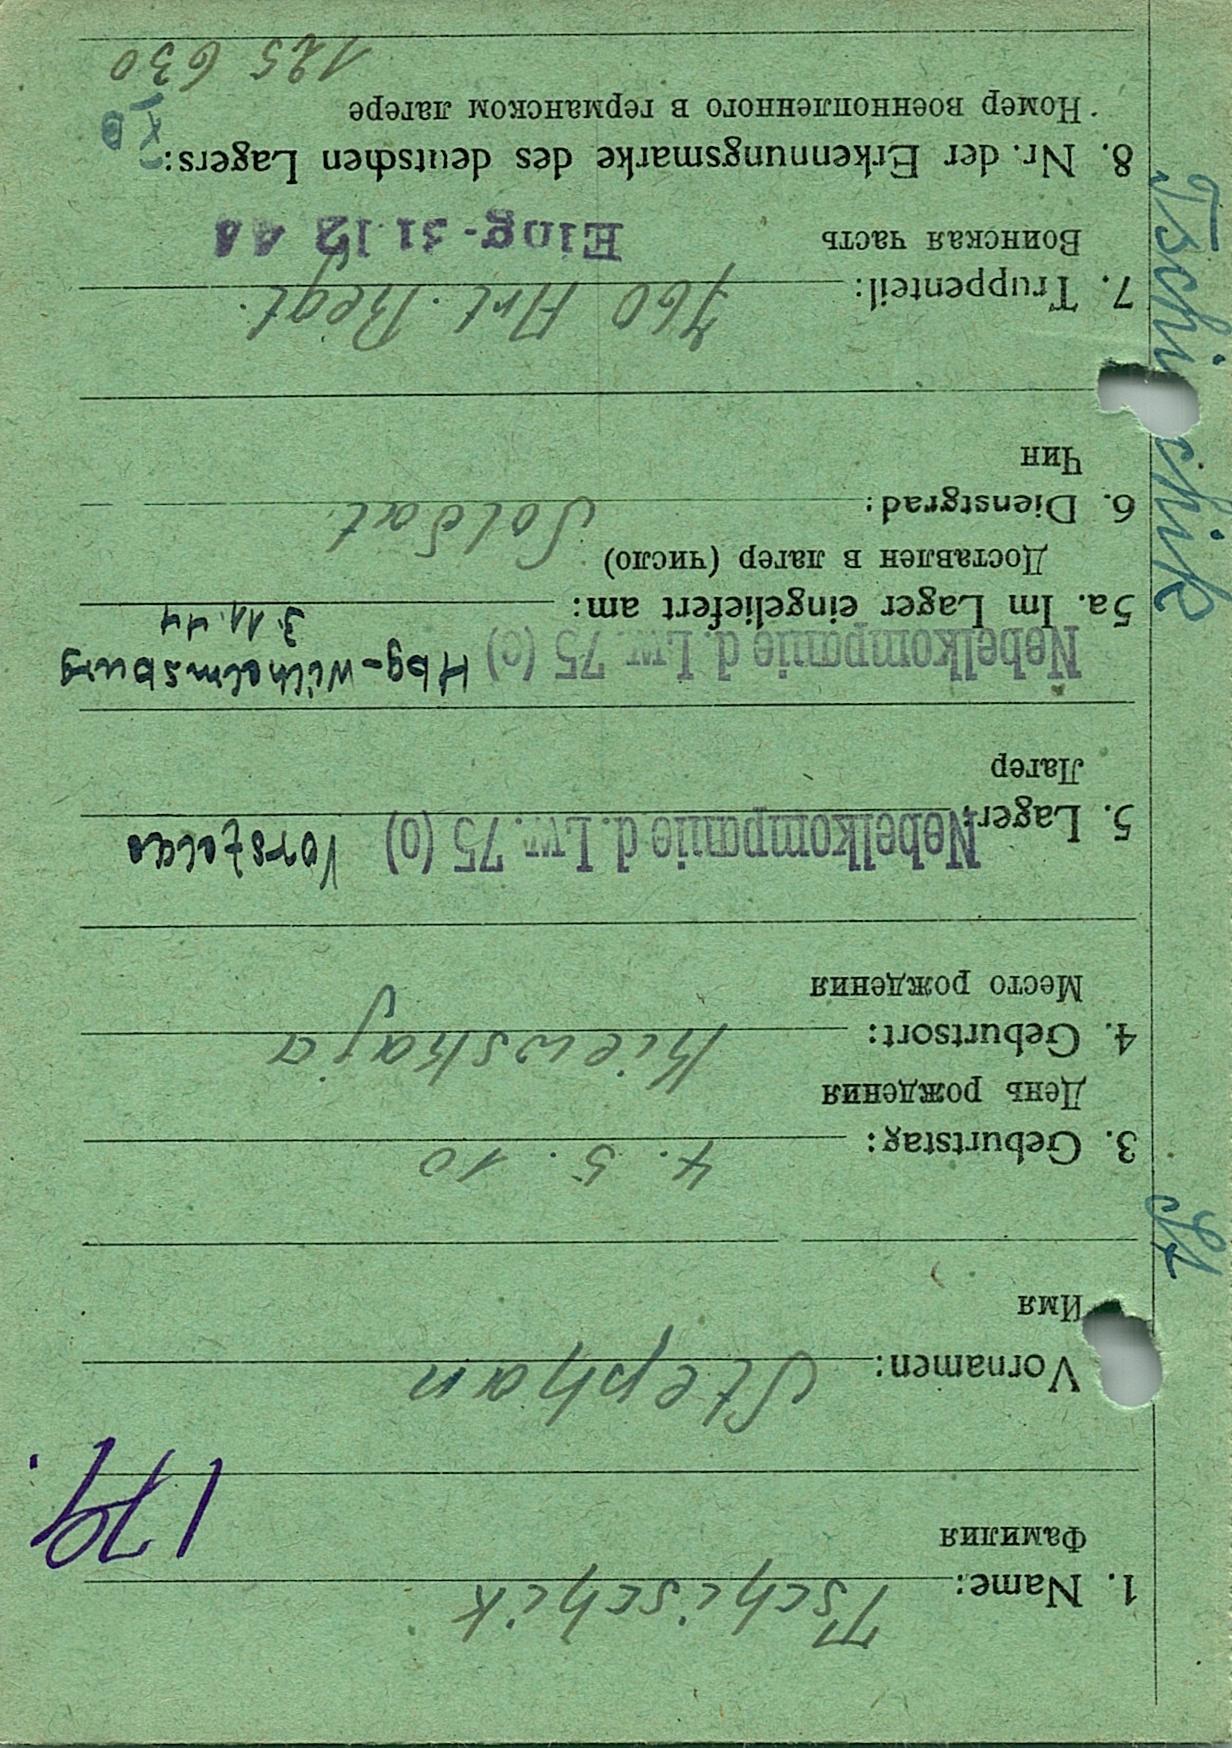 Tschischik St
1. Name: Tschischik
Фамилия
179.
Vornamen: Stephan
Имя
3. Geburtstag: 4. 5. 10
День рождения
4. Geburtsort: Kiewskaja
Место рождения
5. Lager: Nebelkompanie d. Lw. 75 (o)
Лагер
Nebelkompanie d. Lw. 75 (o) Hbg-Wilhelmsburg
5a. Im Lager eingeliefert am: 3.11.44
Доставлен в лагер (число)
6. Dienstgrad: Soldat.
Чин
7. Truppenteil: 760 Art. Regt.
Воинская часть Eing. 31.12.41
8. Nr. der Erkennungsmarke des deutschen Lagers: X D
Номер военнопленного в германском лагере
125 630